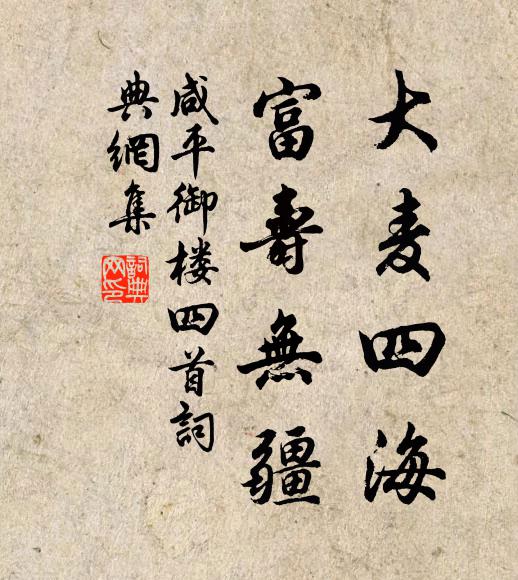 大麦四海
富壽無疆
咸平御楼四首詞
典網集
詞典網印